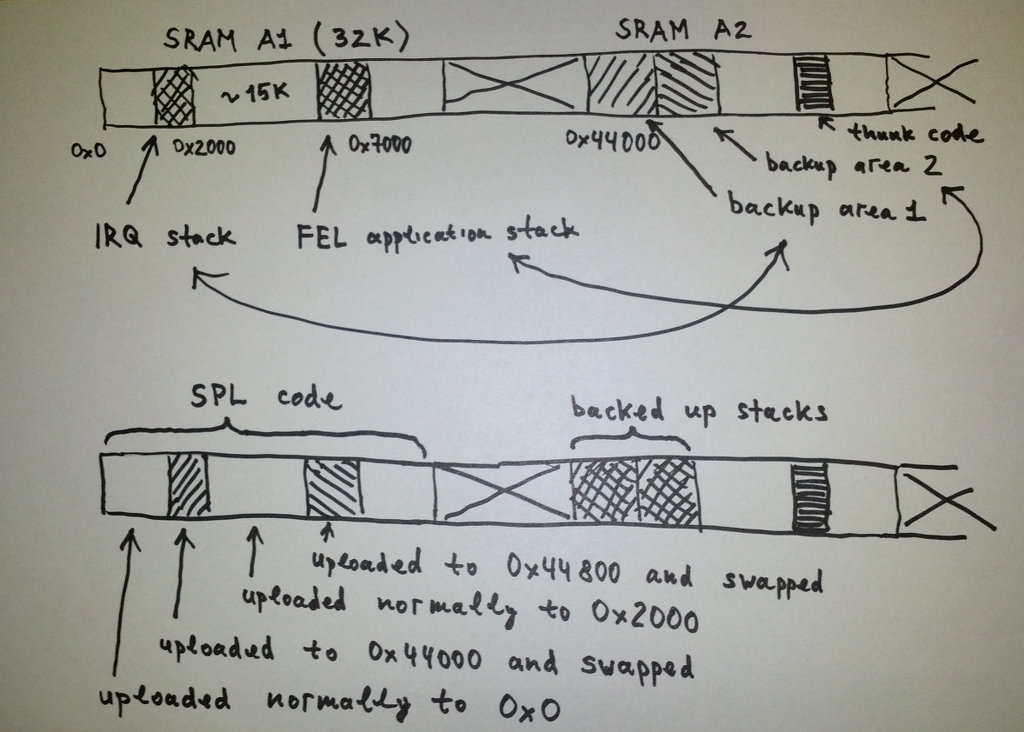 SRAM A1 (32K)
SRAM A2
~15K
0x0
0x2000
0x7000
0x44000
thunk code
backup area 2
backup area 1
IRQ stack
FEL application stack
SPL code
backed up stacks
uploaded to 0x44800 and swapped
uploaded normally to 0x2000
uploaded to 0x44000 and swapped
uploaded normally to 0x0